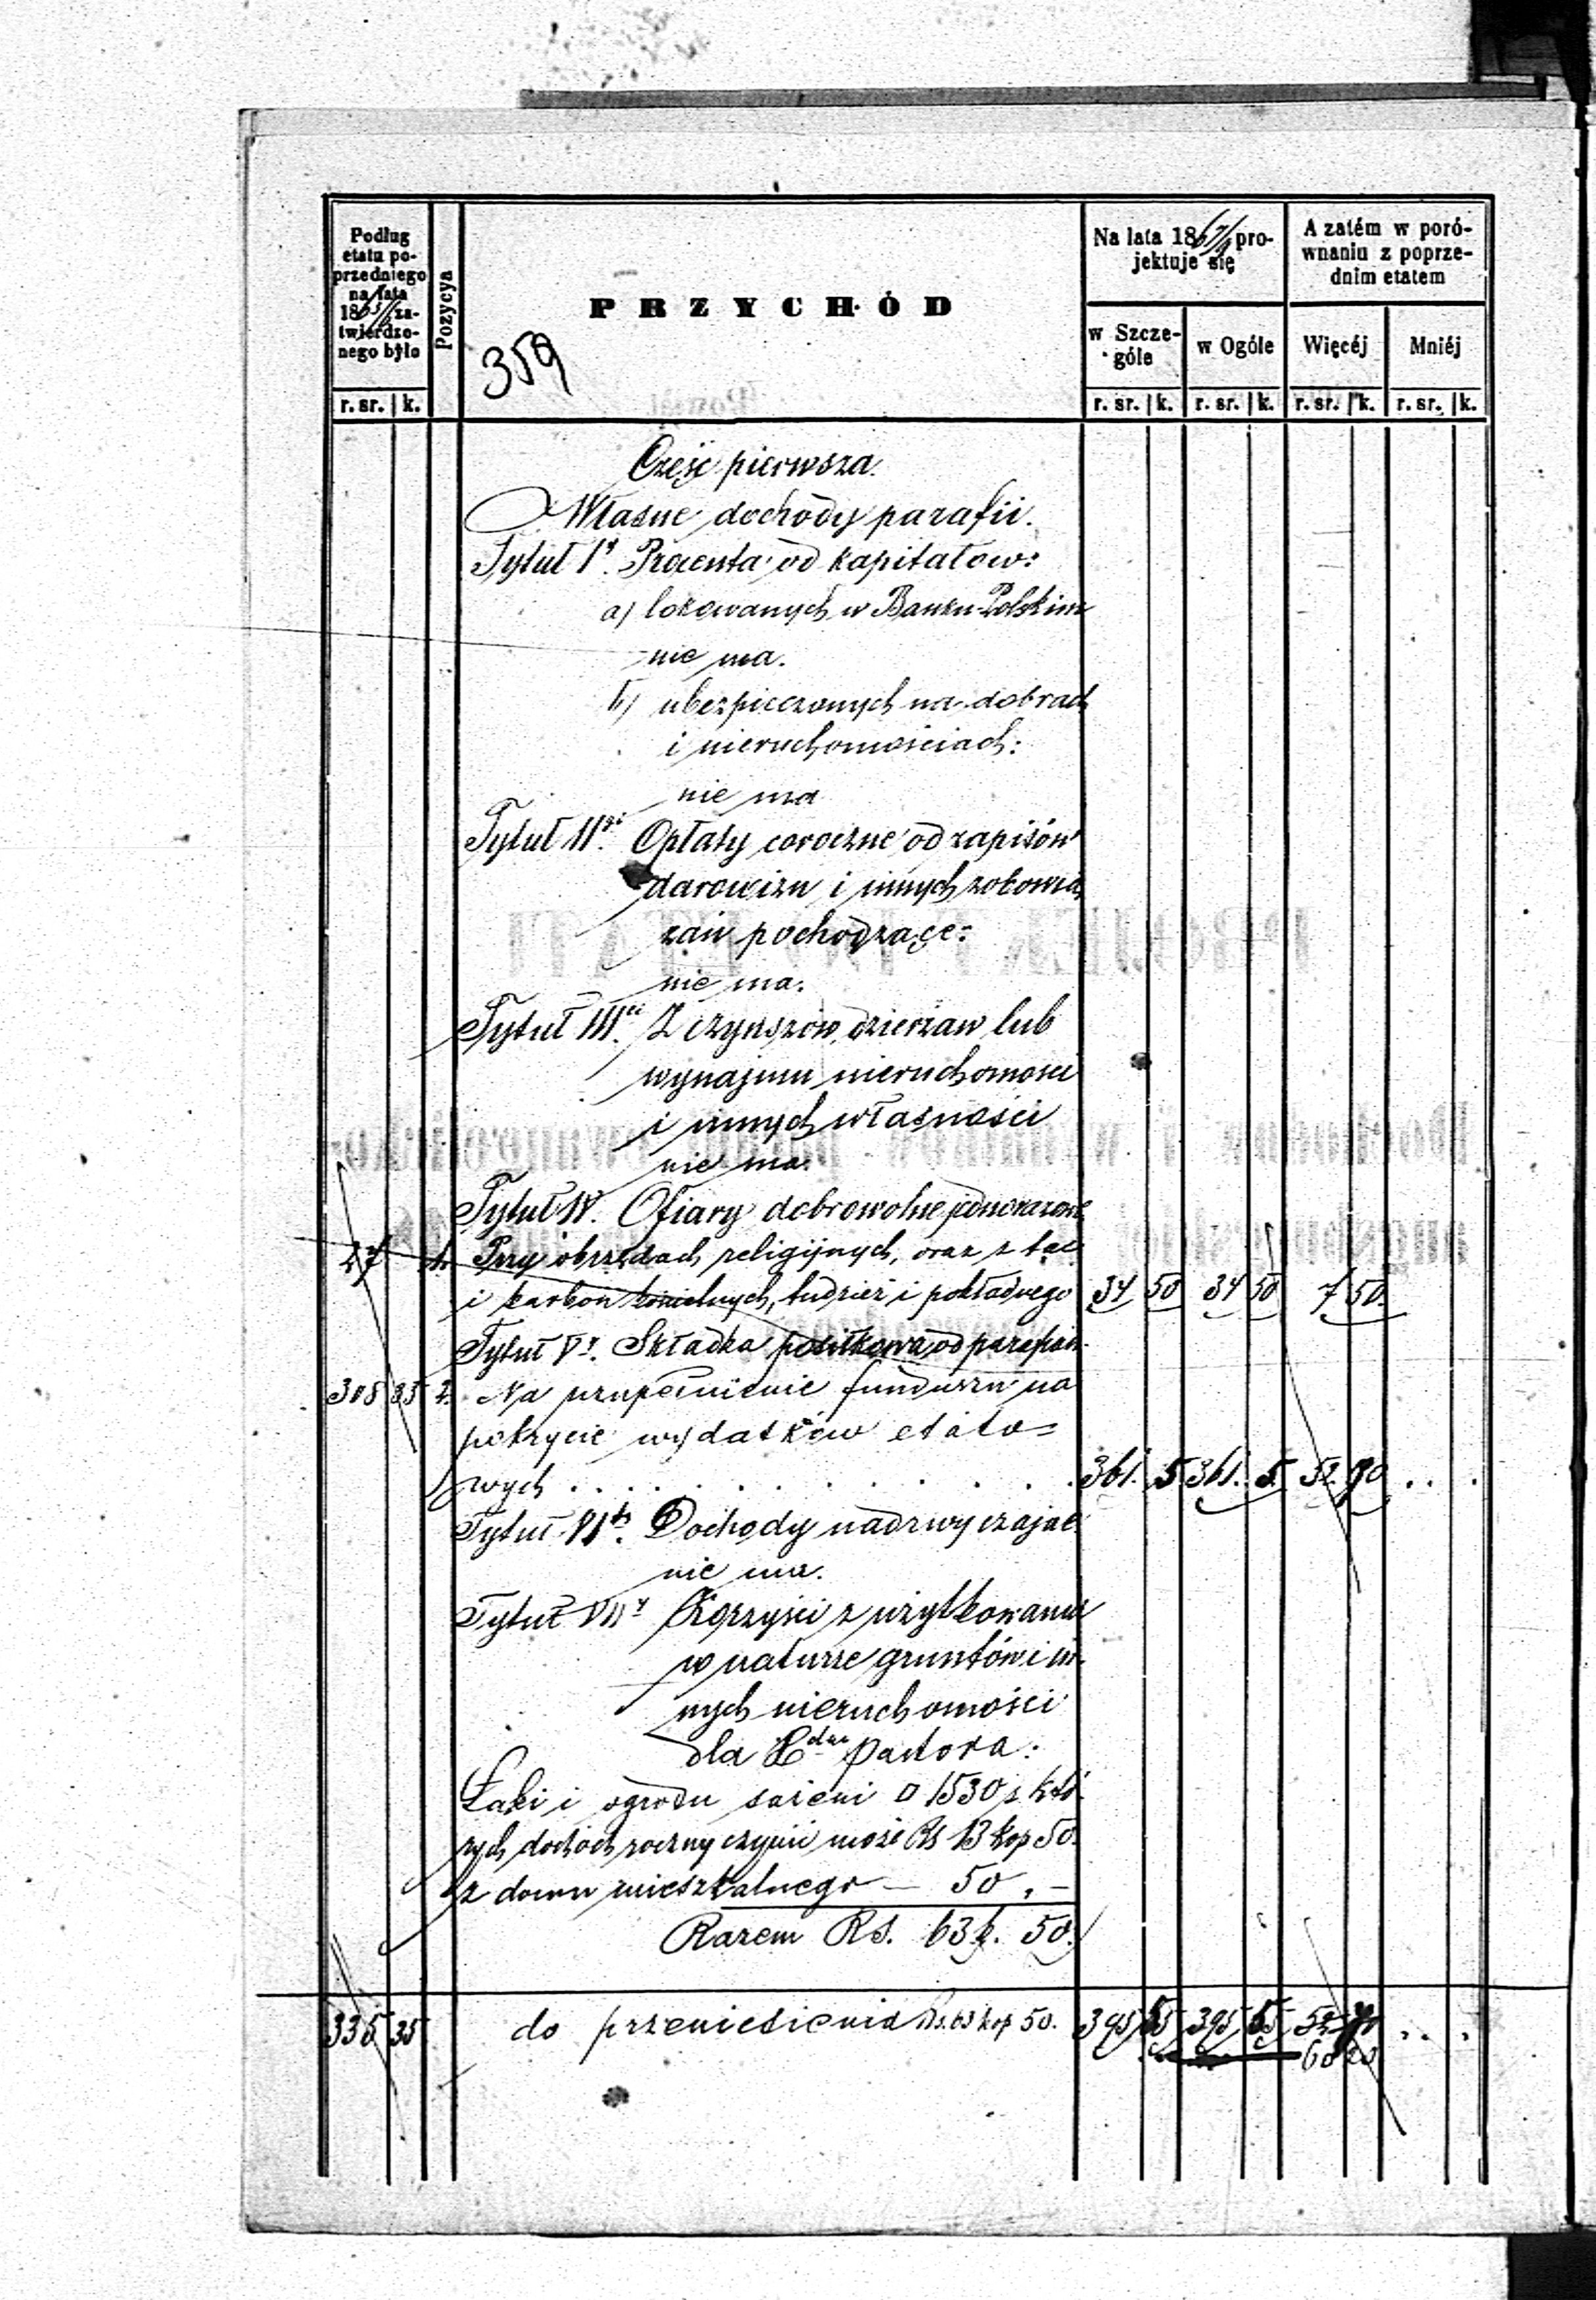 Podług etatu poprzedniego na lata 186 zatwierdzonego było
Pozycya
PRZYCHÓD
359
Na lata 186 projektuje się
A zatém w porównaniu z poprzednim etatem
w Szczególe
w Ogóle
Więcéj
Mniéj
r. sr. k. r. sr. k. r. sr. k. r. sr. k. r. sr. k.
Część pierwsza.
Własne dochody parafii.
Tytuł Iy. Procenta od kapitałów:
a) lokowanych w Banku Polskim
nie ma.
b) ubezpieczonych na dobrach
i nieruchomościach:
nie ma
Tytuł IIgi. Opłaty coroczne od zapisów
darowizn i innych zobowią
zań pochodzące:
nie ma.
Tytuł IIIci. Z czynszów, dzierżaw lub
wynajmu nieruchomości
i innych własności
nie ma.
Tytuł IV. Ofiary dobrowolne jednorazowe
27 1. Przy obrzędach religijnych, oraz z tac
i karbon kościelnych, tudzież i pokładnego 34 50 34 50 7 50.
Tytuł Vy. Składka posiłkowa od parafian.
308 35 2. Na uzupełnienie funduszu na
pokrycie wydatków etato=
wych . . . . . . . . . . 361. 5 361. 5. 52. 70 . . .
Tytuł VIty. Dochody nadzwyczajne
nie ma.
Tytuł VIIy Korzyści z użytkowania
w naturze gruntów i in-
nych nieruchomości
dla Pastora:
Łąki i ogrodu sążeni □ 1530 z któ-
rych dochód roczny czynić może Rs 13 kop 50.
z domu mieszkalnego — 50 . —
Razem Rs. 63 k. 50.
335 35 do przeniesienia Rs. 63 kop 50. 395 55 395 55 52 70 . . .
60 20